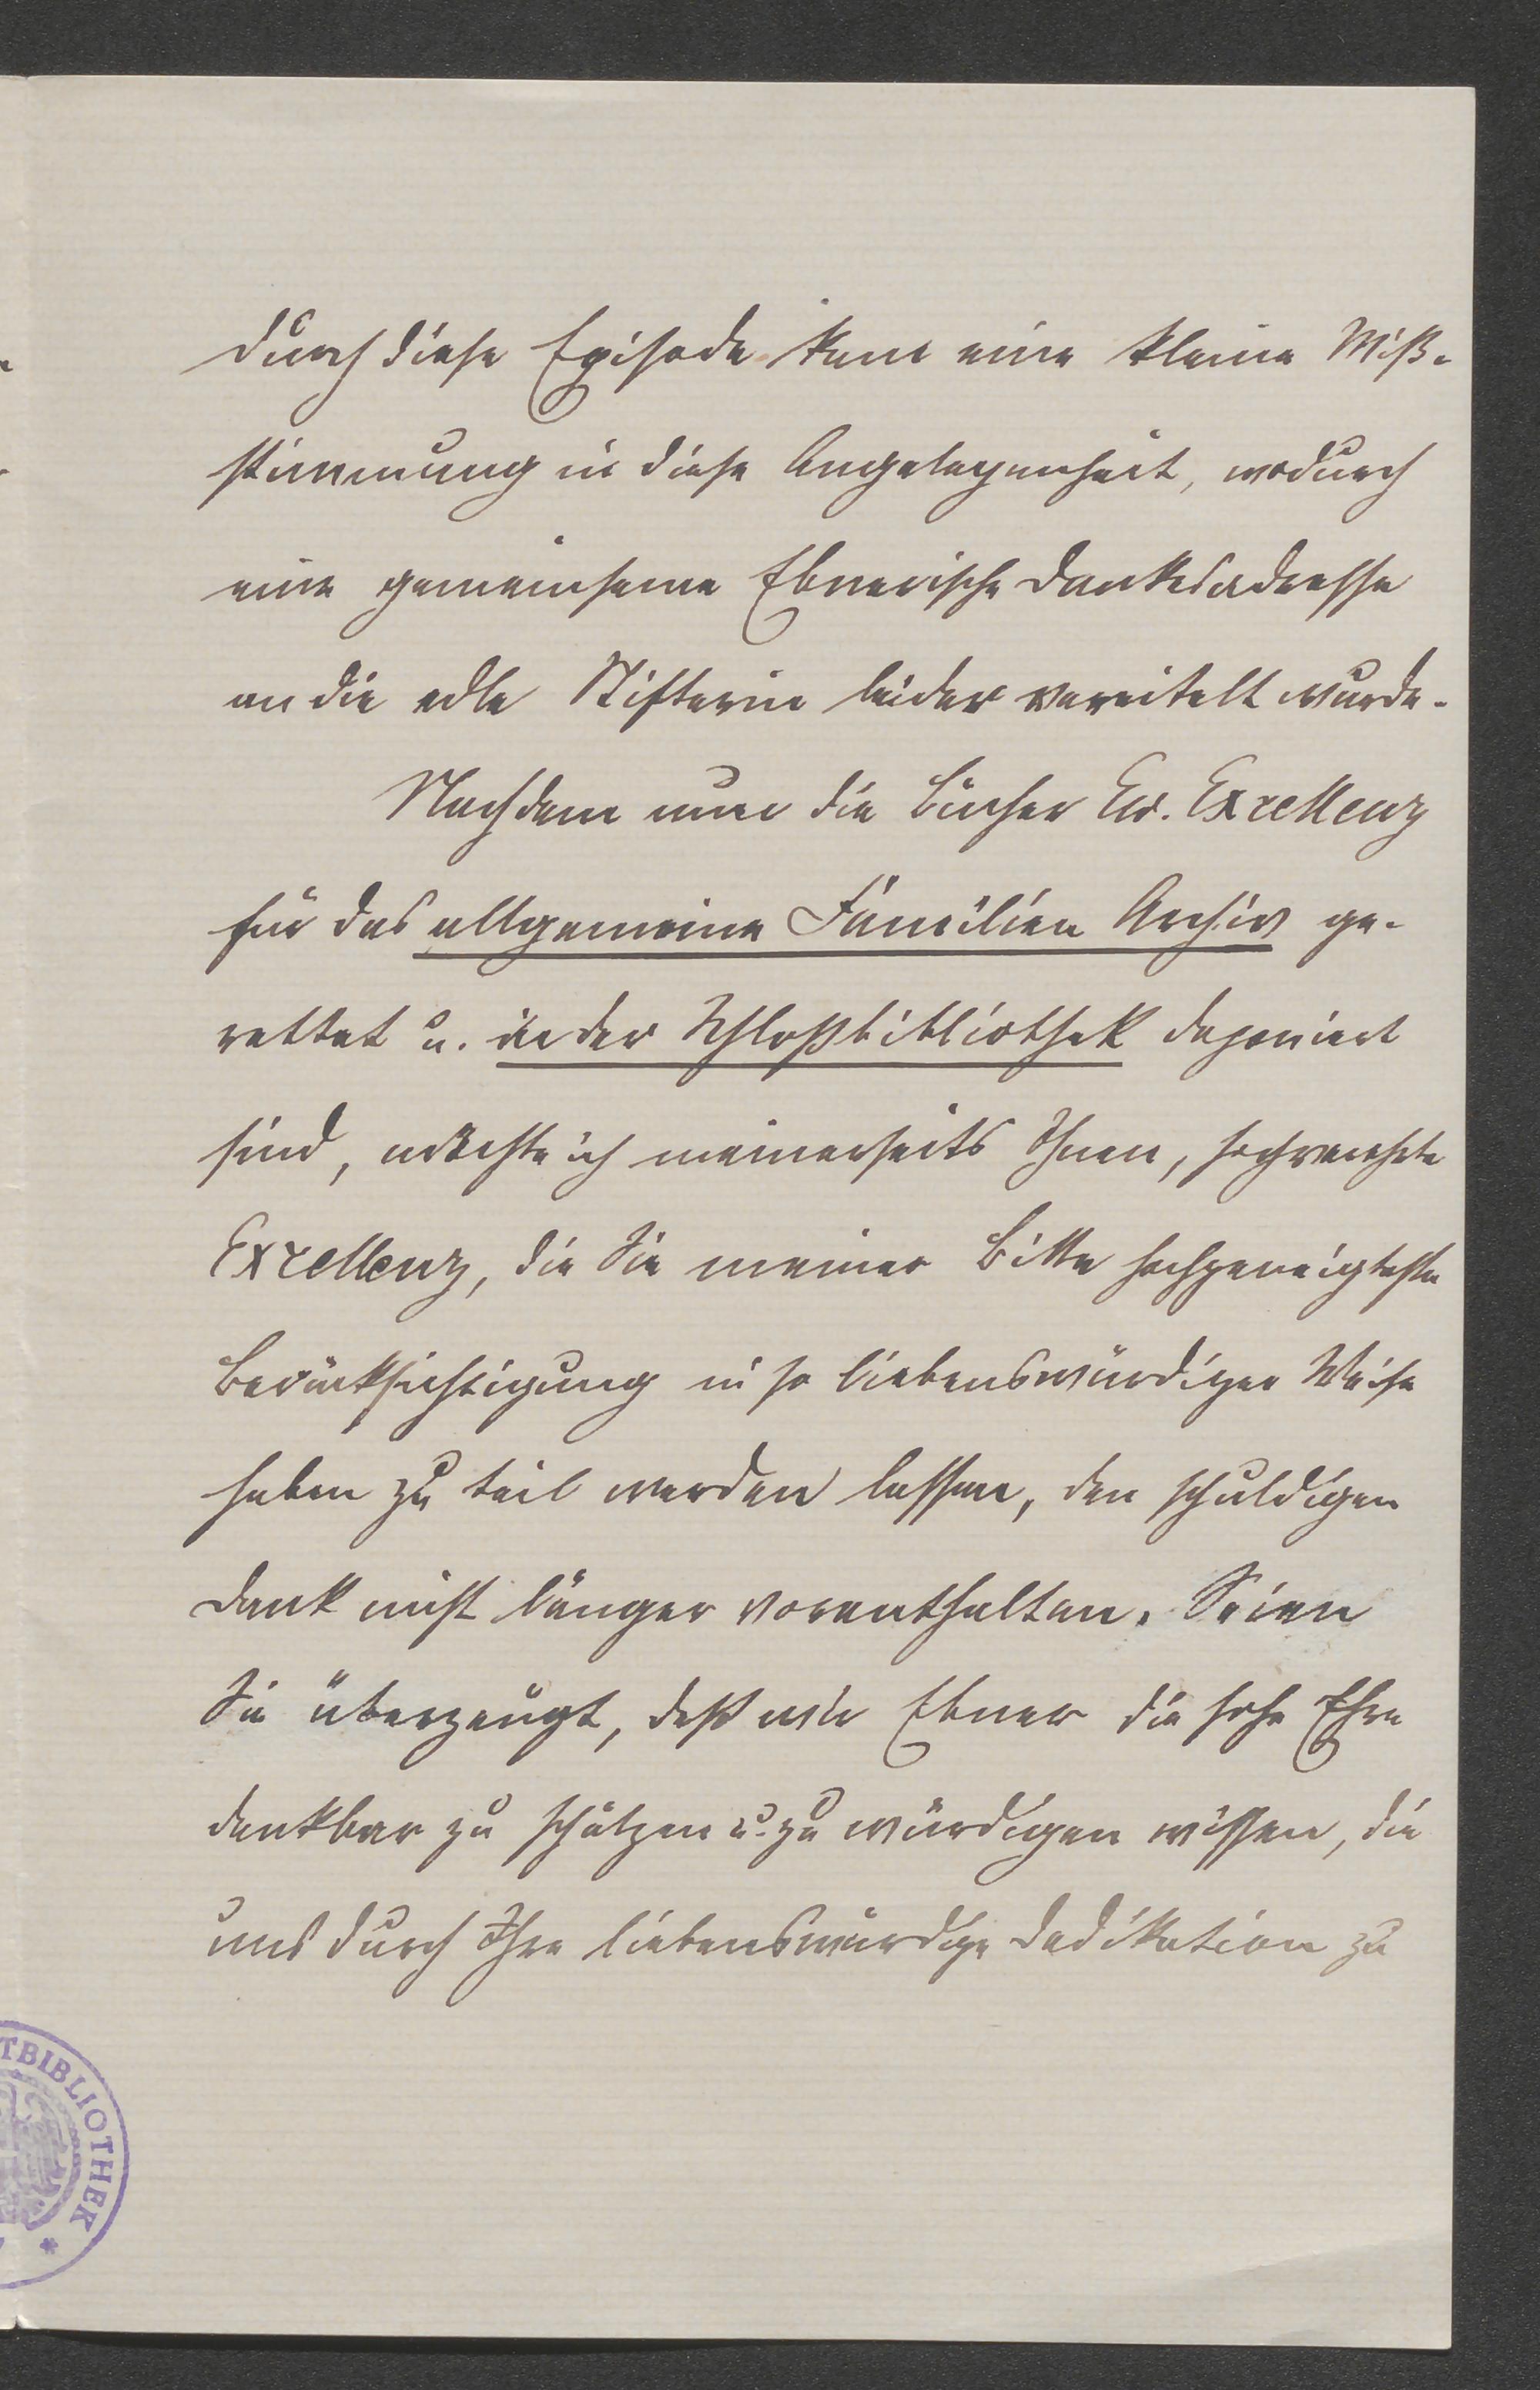 durch diese Episode kam eine kleine Miß-
stimmung in diese Angelegenheit, wodurch
eine gemeinsame Ebnerische Dankesadresse
an die edle Stifterin leider vereitelt wurde.
Nachdem nun die Bücher Ew. Excellenz
für das allgemeine Familien Archiv ge-
rettet u. in der Schloßbibliothek deponiert
sind, möchte ich meinerseits Ihnen, hochverehrte
Excellenz, die Sie meiner Bitte hochgeneigteste
Berücksichtigung in so liebenswürdiger Weise
haben zu teil werden lassen, den schuldigen
Dank nicht länger vorenthalten. Seien
Sie überzeugt, daß wir Ebner die hohe Ehre
dankbar zu schätzen u. zu würdigen wissen, die
uns durch Ihre liebenswürdige Dedikation zu
TBIBLIOTHEK *